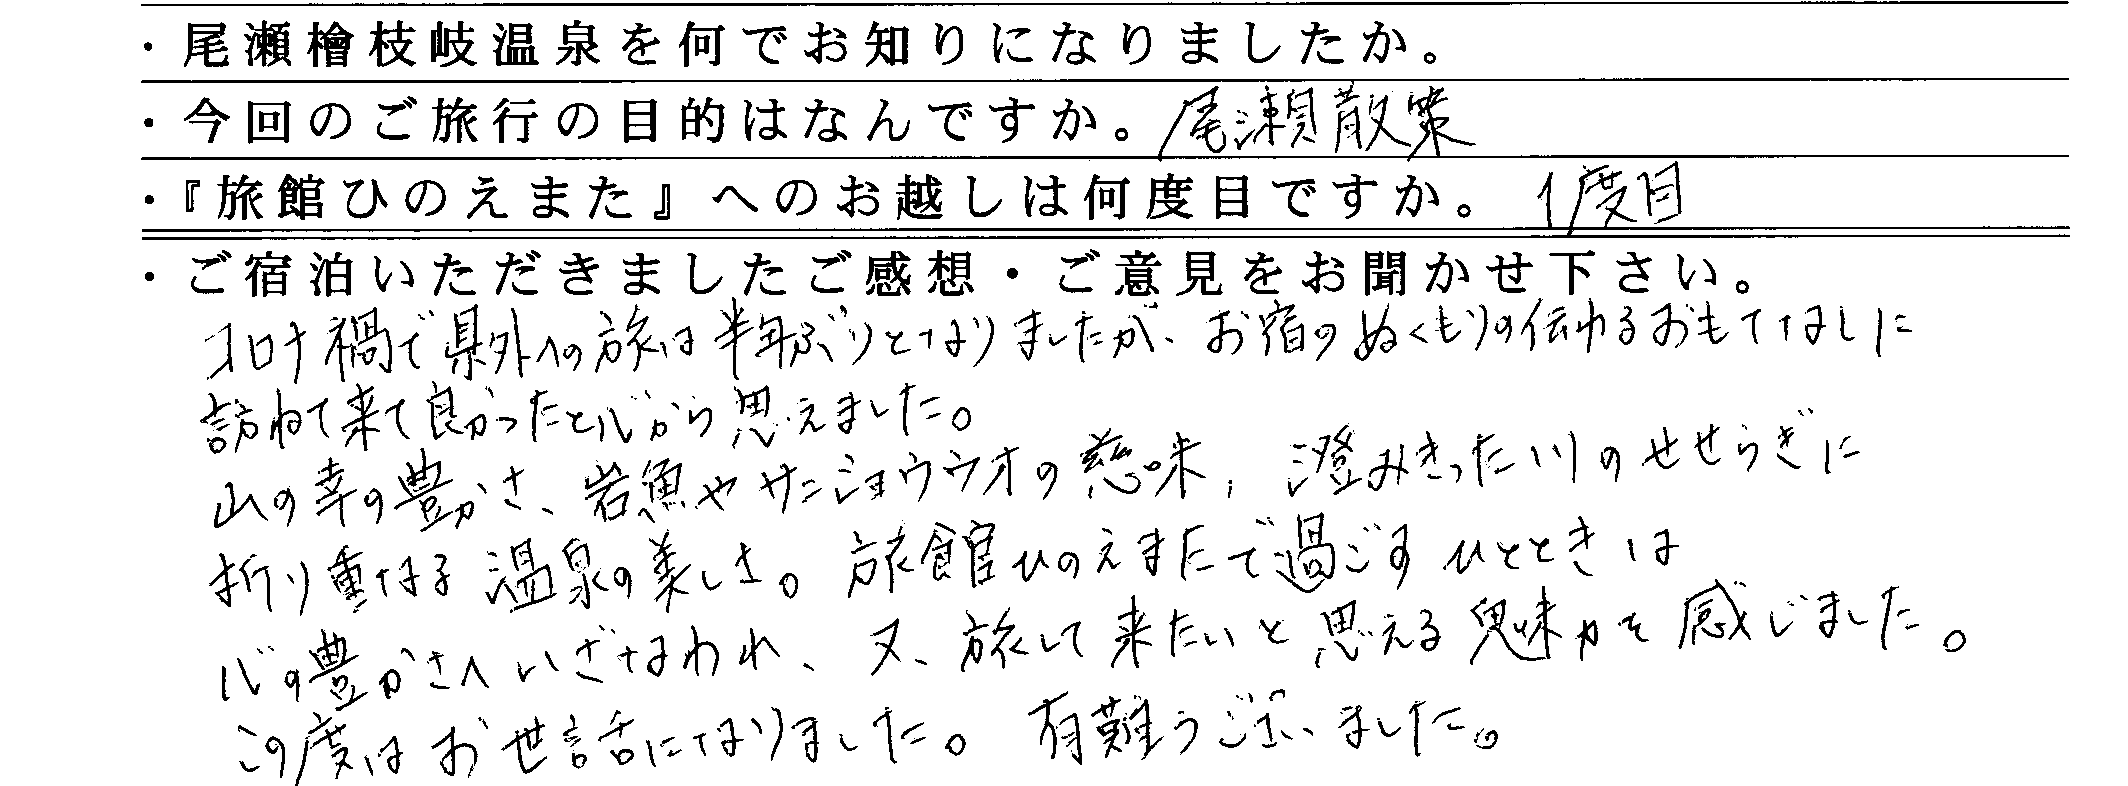 ・尾瀬檜枝岐温泉を何でお知りになりましたか。
・今回のご旅行の目的はなんですか。尾瀬散策
・『旅館ひのえまた』へのお越しは何度目ですか。 1度目
・ご宿泊いただきましたご感想・ご意見をお聞かせ下さい。
コロナ禍で県外への旅は半年ぶりとなりましたが、お宿のぬくもりの伝わるおもてなしに
訪ねて来て良かったと心から思えました。
山の幸の豊かさ、岩魚やサンショウウオの慈味，澄みきった川のせせらぎに
折り重なる温泉の美しさ。旅館ひのえまたで過ごすひとときは
心の豊かさへいざなわれ、又、旅して来たいと思える魅力を感じました。
この度はお世話になりました。有難うございました。